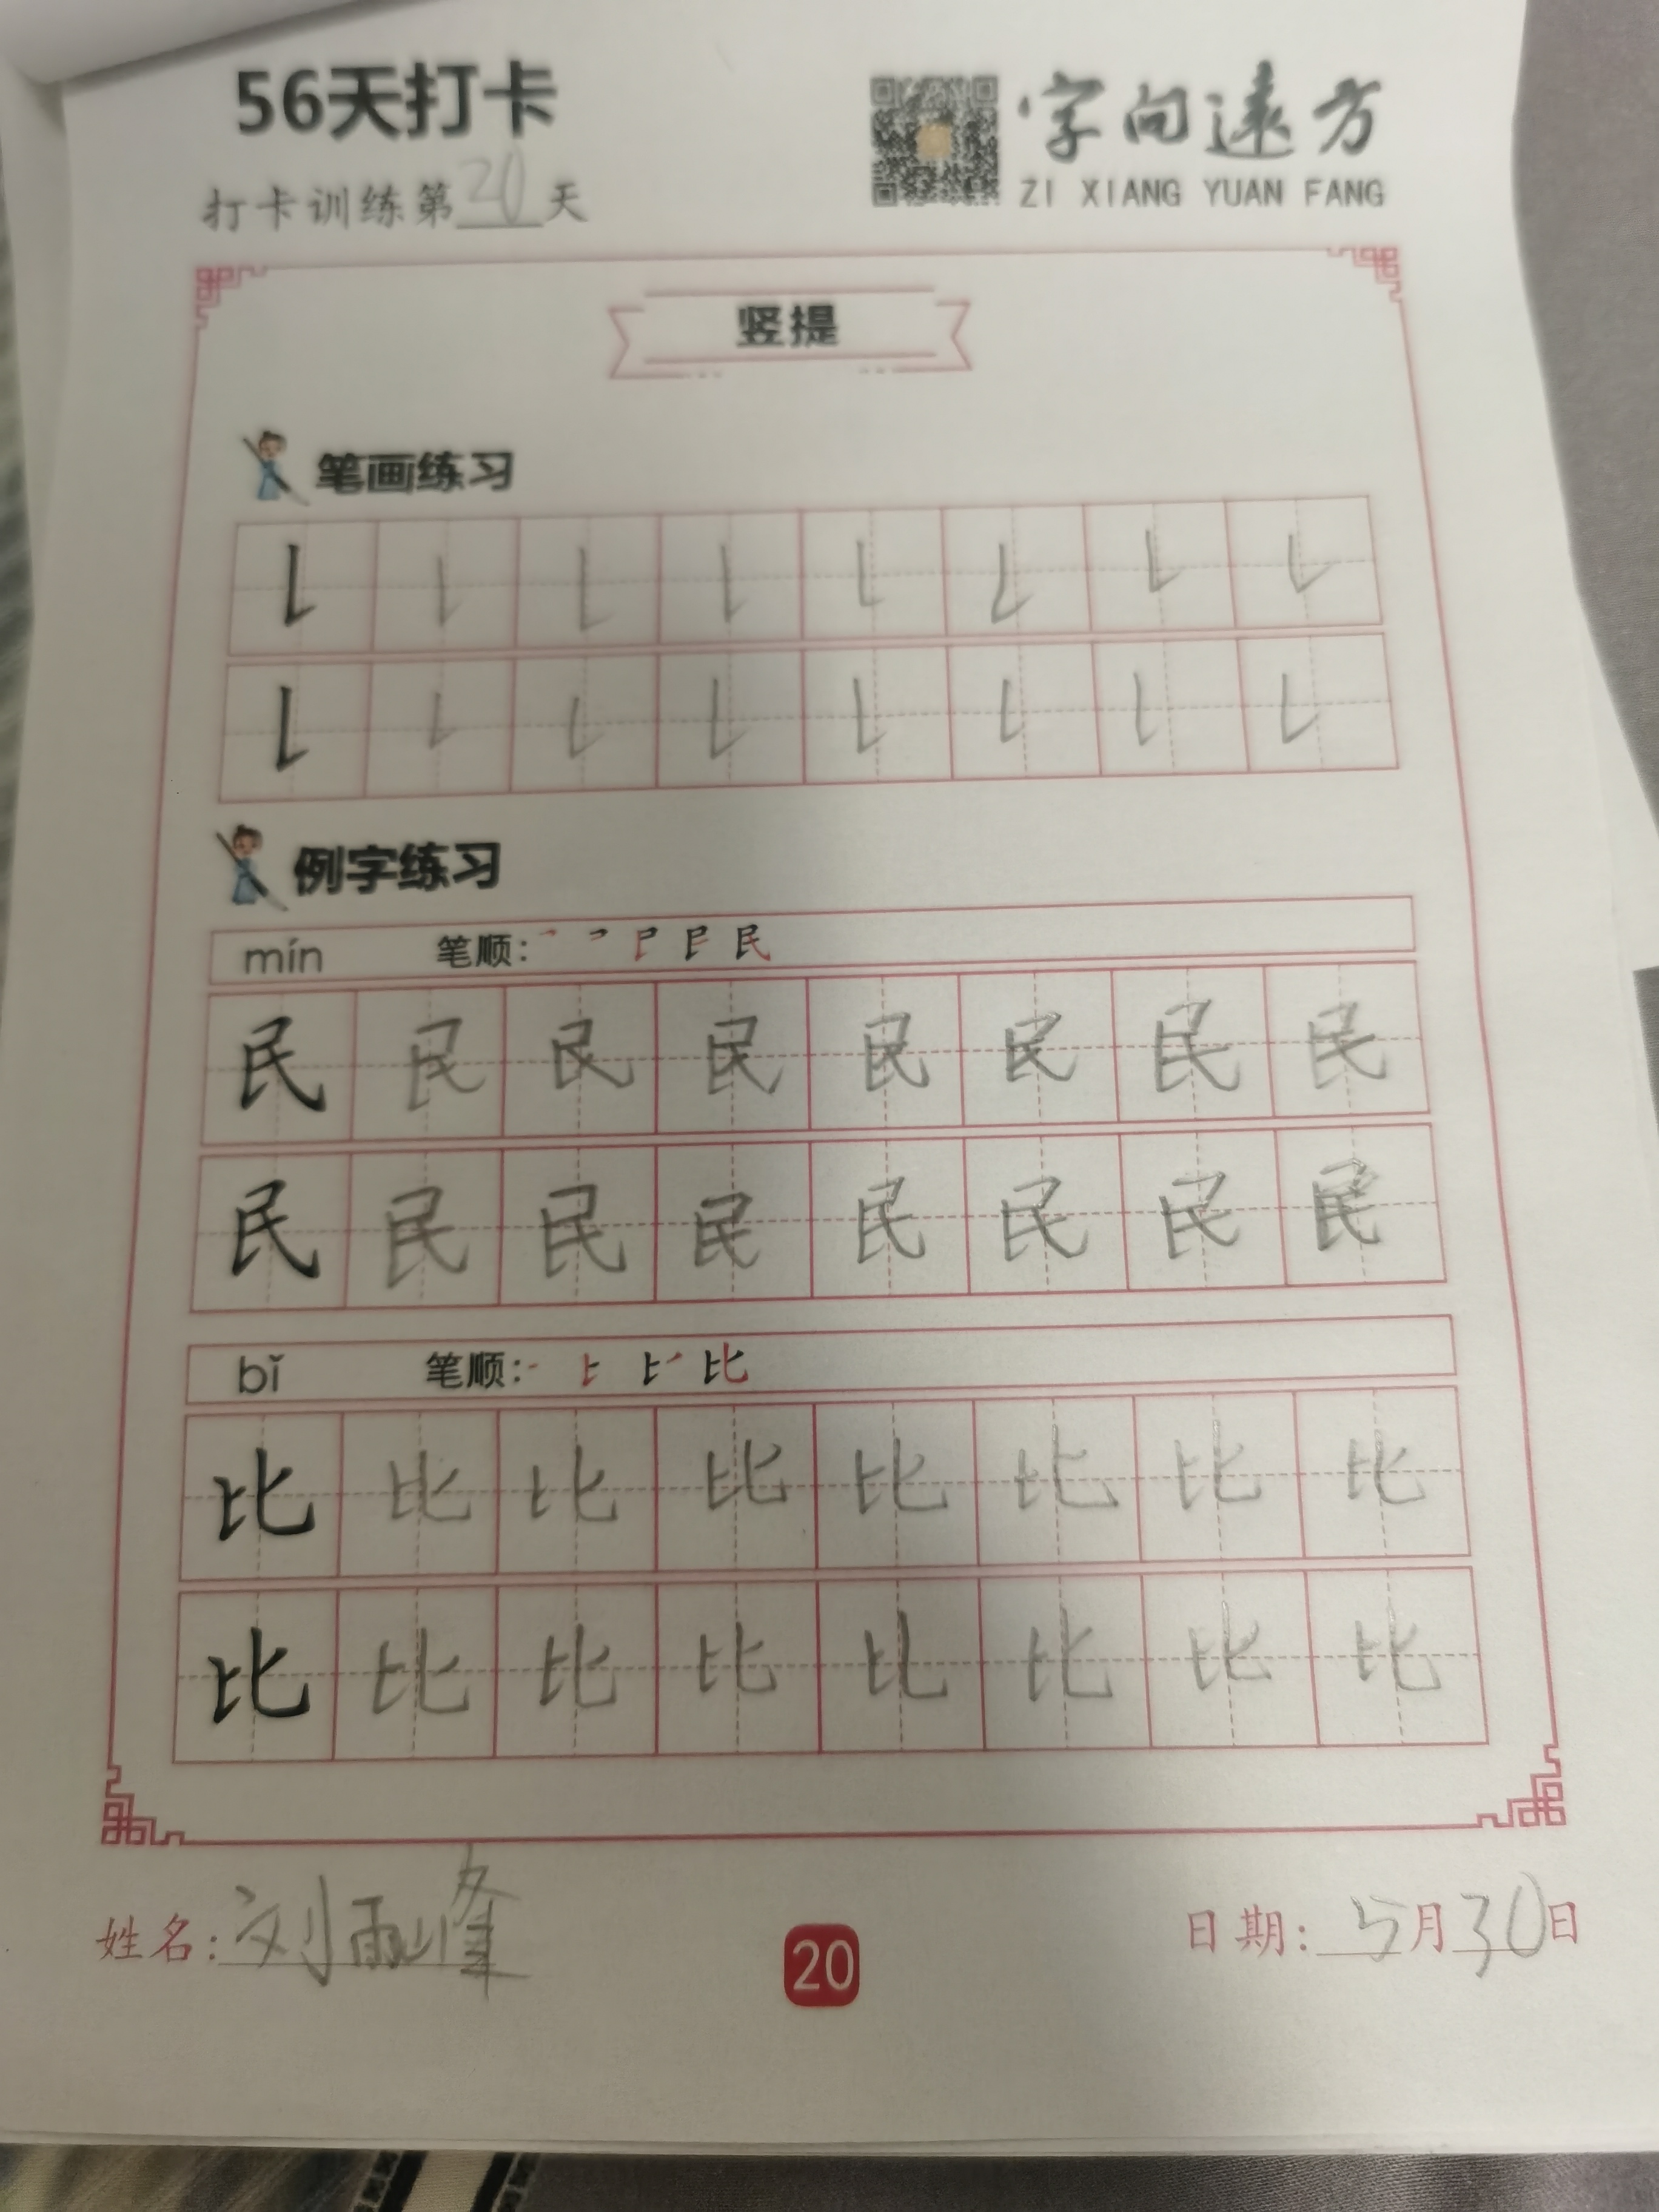 56天打卡
字向远方
ZI XIANG YUAN FANG
打卡训练第20天
竖提
笔画练习
例字练习
mín 笔顺: 民
民 民 民 民 民 民 民 民
民 民 民 民 民 民 民 民
bǐ 笔顺: 比
比 比 比 比 比 比 比 比
比 比 比 比 比 比 比 比
姓名: 刘雨峰
20
日期: 5月30日